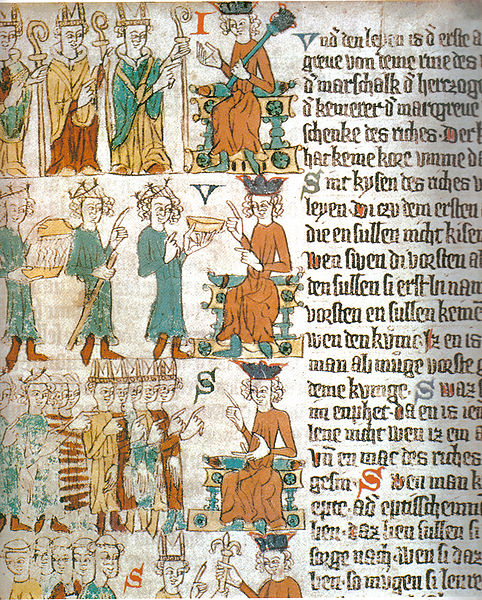 I
V
S
S
Vnd den leyen is d̕ erste a
greue von deme rine des
d̕ marschalk d̕ herzoge
d̕ kemerer d̕ margreue
schenke des riches. Der k
hat keine kore vmme da
Sint kysen des riches v
leyen. Di czu dem ersten
die en sullen nicht kisen
wen swen di vorsten al
den sullen si erst bi nam
vorsten en sullen keine
wen den kunic. Iz en is
man ab muge vorste g
deme kunge. Swaz
im enphet. da en is ien
lene nicht wen iz em a
vn̄ en mac des riches
gesin. Swen man k
ad
ben. daz ben sullen si
sorge nach. wen si daz
ben. so mugen si